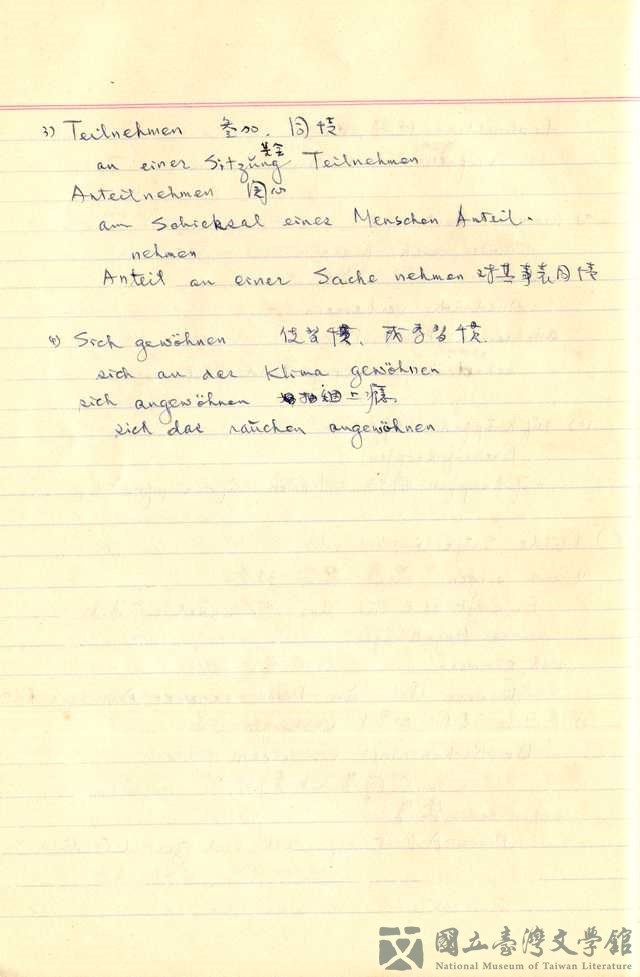 3) Teilnehmen 参加, 同情
某会
an einer Sitzung Teilnehmen
Anteilnehmen 関心
am Schicksal eines Menschen Anteil-
nehmen
Anteil an einer Sache nehmen 对某事表同情
4) Sich gewöhnen 使習慣, 習慣
sich an das Klima gewöhnen
sich angewöhnen 上癮
sich das rauchen angewöhnen
國立臺灣文學館
National Museum of Taiwan Literature